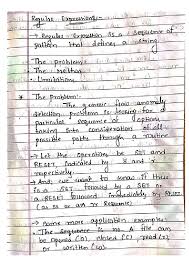 Regular Expressions:-
→ Regular Expression is a sequence of
pattern that defines a string.
→ The problem:-
→ The method
→ Limitations.
* The Problem:-
→ The generic flow anomaly
detection problem is looking for a
particular sequence of options
taking into consideration of all
possible paths through a routine
→ Let the operations be SET and
RESET, indicated by S and R
respectively.
→ And, we want to know if there
is a SET followed by a SET or
a RESET followed immediately by RESET
(an SS or an RR sequence)
→ Some more application examples:-
→ The sequence is no A file can
be opened (o), closed (c), read (r),
or written (w).